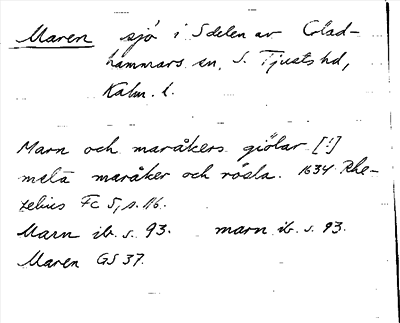 Maren sjö i S delen av Glad-
hammars sn, S. Tjusts hd,
Kalm. l.
Marn och maråkers giölar [!]
mela maråker och rösla. 1634 Rhe-
zelius Fc 5, s. 116.
Marn ib. s. 93. marn ib. s. 93.
Maren GS 37.